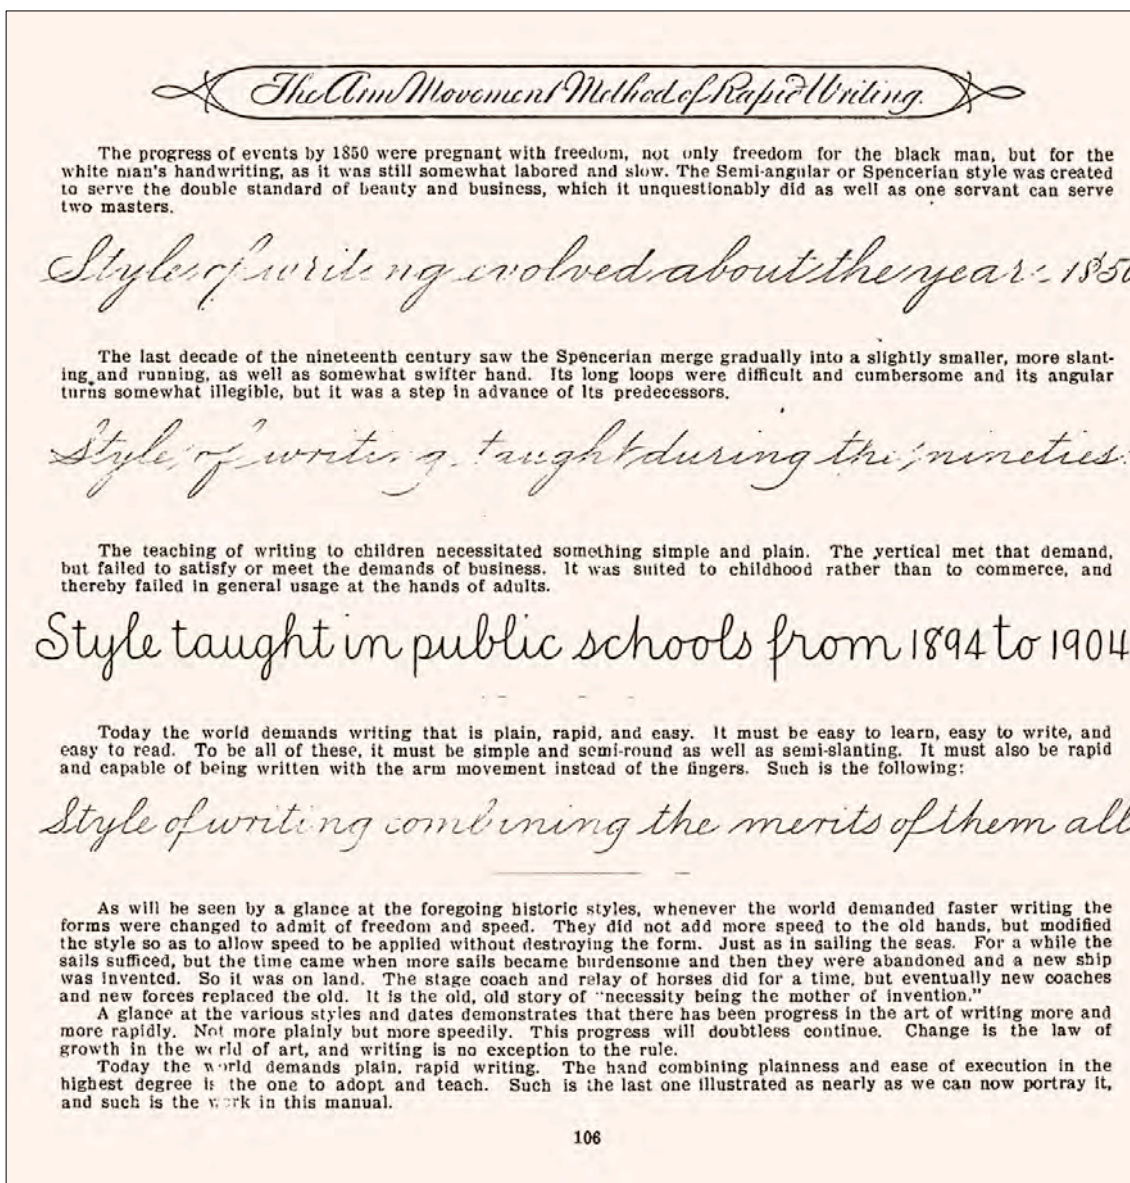 The Arm Movement Method of Rapid Writing.
The progress of events by 1850 were pregnant with freedom, not only freedom for the black man, but for the
white man's handwriting, as it was still somewhat labored and slow. The Semi-angular or Spencerian style was created
to serve the double standard of beauty and business, which it unquestionably did as well as one servant can serve
two masters.
Style of writing evolved about the year 1850
The last decade of the nineteenth century saw the Spencerian merge gradually into a slightly smaller, more slant-
ing and running, as well as somewhat swifter hand. Its long loops were difficult and cumbersome and its angular
turns somewhat illegible, but it was a step in advance of its predecessors.
Style of writing taught during the nineties.
The teaching of writing to children necessitated something simple and plain. The vertical met that demand,
but failed to satisfy or meet the demands of business. It was suited to childhood rather than to commerce, and
thereby failed in general usage at the hands of adults.
Style taught in public schools from 1894 to 1904
Today the world demands writing that is plain, rapid, and easy. It must be easy to learn, easy to write, and
easy to read. To be all of these, it must be simple and semi-round as well as semi-slanting. It must also be rapid
and capable of being written with the arm movement instead of the fingers. Such is the following:
Style of writing combining the merits of them all
As will be seen by a glance at the foregoing historic styles, whenever the world demanded faster writing the
forms were changed to admit of freedom and speed. They did not add more speed to the old hands, but modified
the style so as to allow speed to be applied without destroying the form. Just as in sailing the seas. For a while the
sails sufficed, but the time came when more sails became burdensome and then they were abandoned and a new ship
was invented. So it was on land. The stage coach and relay of horses did for a time, but eventually new coaches
and new forces replaced the old. It is the old, old story of "necessity being the mother of invention."
A glance at the various styles and dates demonstrates that there has been progress in the art of writing more and
more rapidly. Not more plainly but more speedily. This progress will doubtless continue. Change is the law of
growth in the world of art, and writing is no exception to the rule.
Today the world demands plain, rapid writing. The hand combining plainness and ease of execution in the
highest degree is the one to adopt and teach. Such is the last one illustrated as nearly as we can now portray it,
and such is the work in this manual.
106